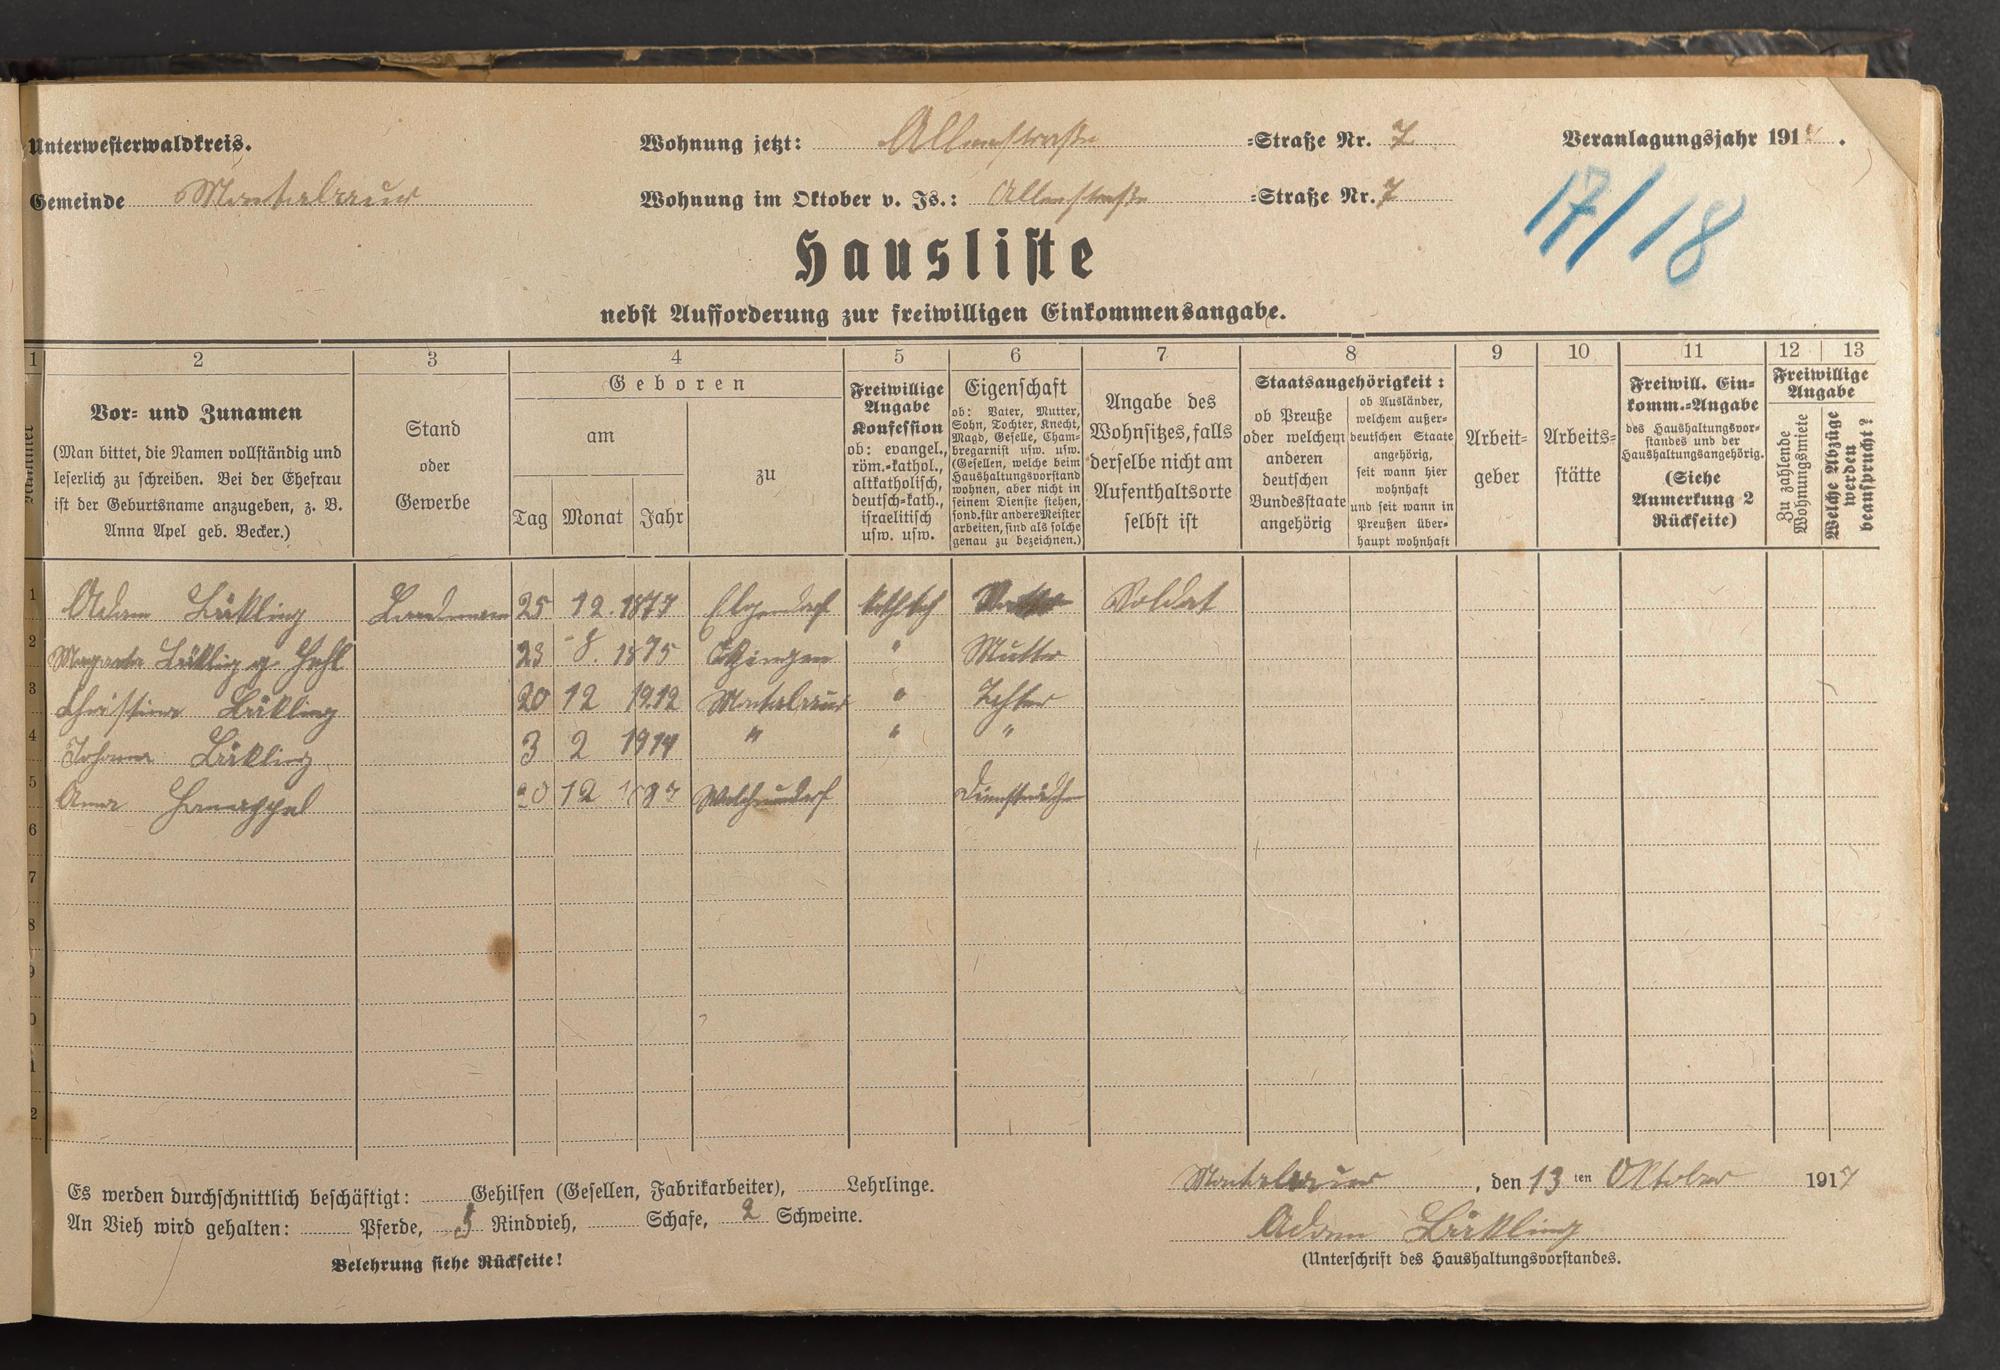 Unterwesterwaldkreis.
Wohnung jetzt: Allmenstraße -Straße Nr. 7
Veranlagungsjahr 191 .
Gemeinde Montabaur
Wohnung im Oktober v. Js.: -Straße Nr. 7
17/18
Hausliste
nebst Aufforderung zur freiwilligen Einkommensangabe.
1 2 3 4 5 6 7 8 9 10 11 12 13
Nummer
Vor- und Zunamen
(Man bittet, die Namen vollständig und
leserlich zu schreiben. Bei der Ehefrau
ist der Geburtsname anzugeben, z. B.
Anna Apel geb. Becker.)
Stand
oder
Gewerbe
Geboren
am
Tag Monat Jahr
zu
Freiwillige
Angabe
Konfession
ob: evangel.,
röm.-kathol.,
altkatholisch,
deutsch-kath.,
israelitisch
usw. usw.
Eigenschaft
ob: Vater, Mutter,
Sohn, Tochter, Knecht,
Magd, Geselle, Cham-
bregarnist usw. usw.
(Gesellen, welche beim
Haushaltungsvorstand
wohnen, aber nicht in
seinem Dienste stehen,
sond. für andere Meister
arbeiten, sind als solche
genau zu bezeichnen.)
Angabe des
Wohnsitzes, falls
derselbe nicht am
Aufenthaltsorte
selbst ist
Staatsangehörigkeit:
ob Preuße
oder welchem
anderen
deutschen
Bundesstaate
angehörig
ob Ausländer,
welchem außer-
deutschen Staate
angehörig,
seit wann hier
wohnhaft
und seit wann in
Preußen über-
haupt wohnhaft
Arbeit-
geber
Arbeits-
stätte
Freiwill. Ein-
komm.-Angabe
des Haushaltungsvor-
standes und der
Haushaltungsangehörig.
(Siehe
Anmerkung 2
Rückseite)
Freiwillige
Angabe
Zu zahlende
Wohnungsmiete
Welche Abzüge
werden
beansprucht?
1 Adam Bäkling Landmann 25 12. 1877 Elgendorf kathlsch Soldat
2 Bäkling g. Hehl 23 8. 1875 Ötzingen " Mutter
3 Christine Bäkling 20 12 1912 Montabaur " Tochter
4 Johanna Bäkling 3 2 1914 " " "
5 Anna 20 12
6
7
8
9
0
1
2
Es werden durchschnittlich beschäftigt: Gehilfen (Gesellen, Fabrikarbeiter), Lehrlinge.
An Vieh wird gehalten: Pferde, Rindvieh, Schafe, 2 Schweine.
Belehrung siehe Rückseite!
Montabaur, den 13 ten Oktober 1917
Adam Bäkling
(Unterschrift des Haushaltungsvorstandes.